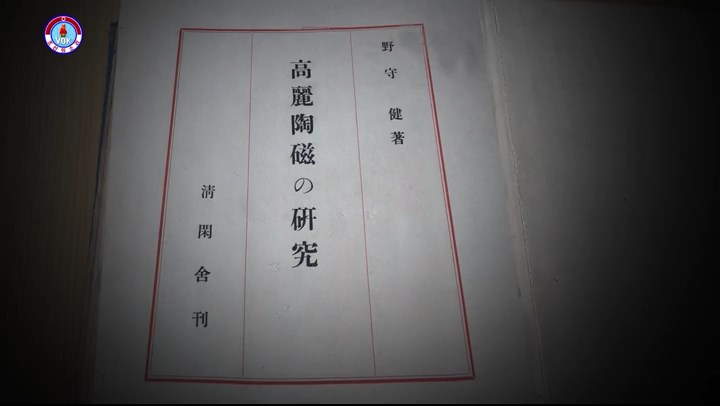 野守健著
高麗陶磁の研究
淸閑舍刊
VOK